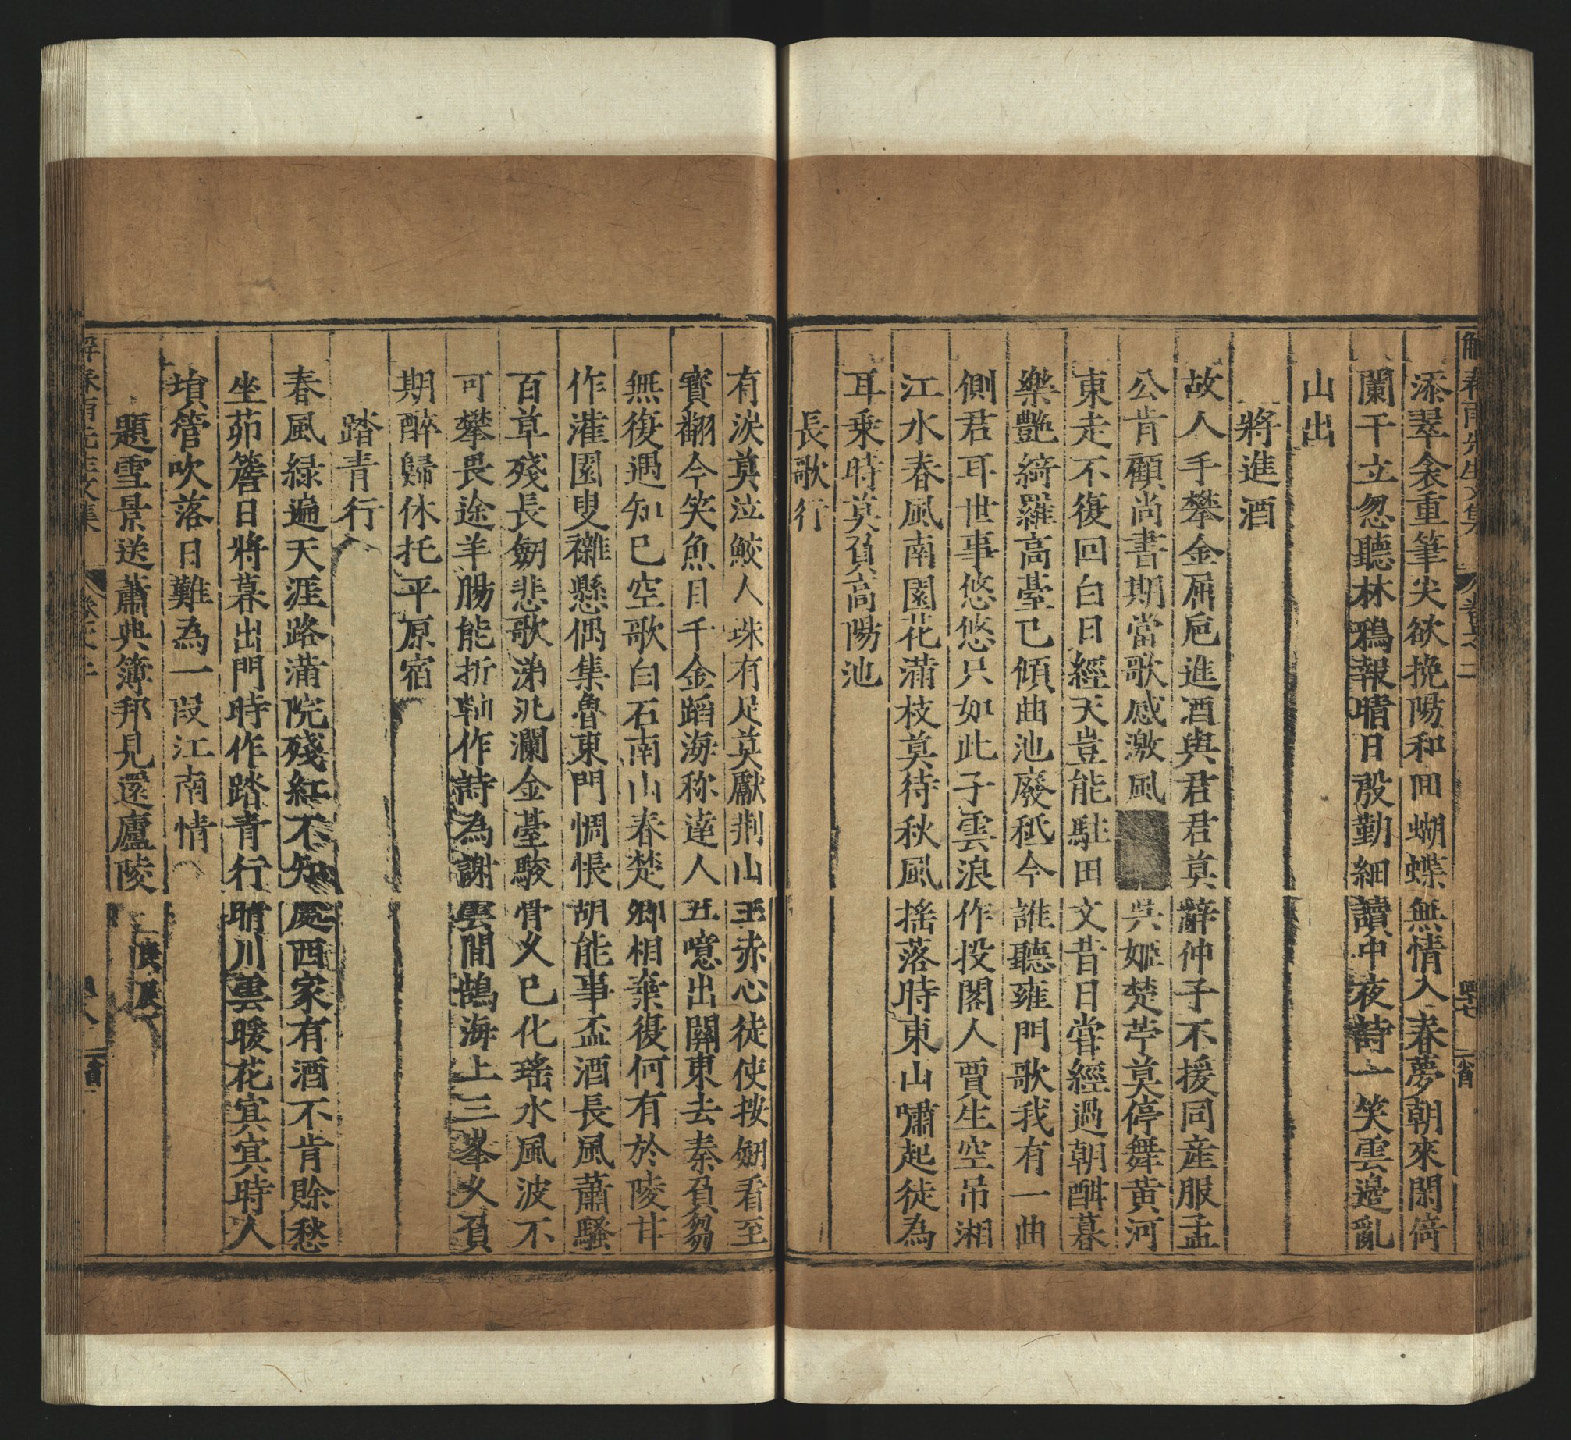 添翠衾重筆尖欲挽陽和回蝴蝶無情入春夢朝來閑倚
闌干立忽聽林鴉報晴日殷勤細讀中夜詩一笑雲邊亂
山出
將進酒
故人手攀金屈卮進酒與君君莫辭仲子不援同産服孟
公肯顧尚書期當歌感激風 吳姬楚苧莫停舞黄河
東走不復回白日經天豈能駐田文昔日嘗經過朝酣暮
樂艷綺羅高臺已傾曲池廢秪今誰聽雍門歌我有一曲
側君耳世事悠悠只如此子雲浪作投閣人賈生空吊湘
江水春風南園花滿枝莫待秋風摇落時東山嘯起徒為
耳乗時莫負高陽池
長歌行
有淚莫泣鮫人珠有足莫獻荆山玉赤心徒使按劒看至
寳翻今笑魚目千金蹈海称達人五噫出關東去秦負芻
無復遇知已空歌白石南山春楚卿相棄復何有於陵甘
作灌園叟襍懸偶集魯東門惆悵胡能事盃酒長風蕭騷
百草殘長劒悲歌涕汍瀾金臺駿骨久已化瑤水風波不
可攀畏途羊腸能折軸作詩為謝雲間鵠海上三峯久負
期醉歸休托平原宿
踏青行
春風緑遍天涯路滿院殘紅不知處西家有酒不肯賒愁
坐茆簷日將暮出門時作踏青行晴川雲暖花寘寘時人
墳管吹落日難為一段江南情
題雪景送蕭典簿邦見還廬陵 庚辰